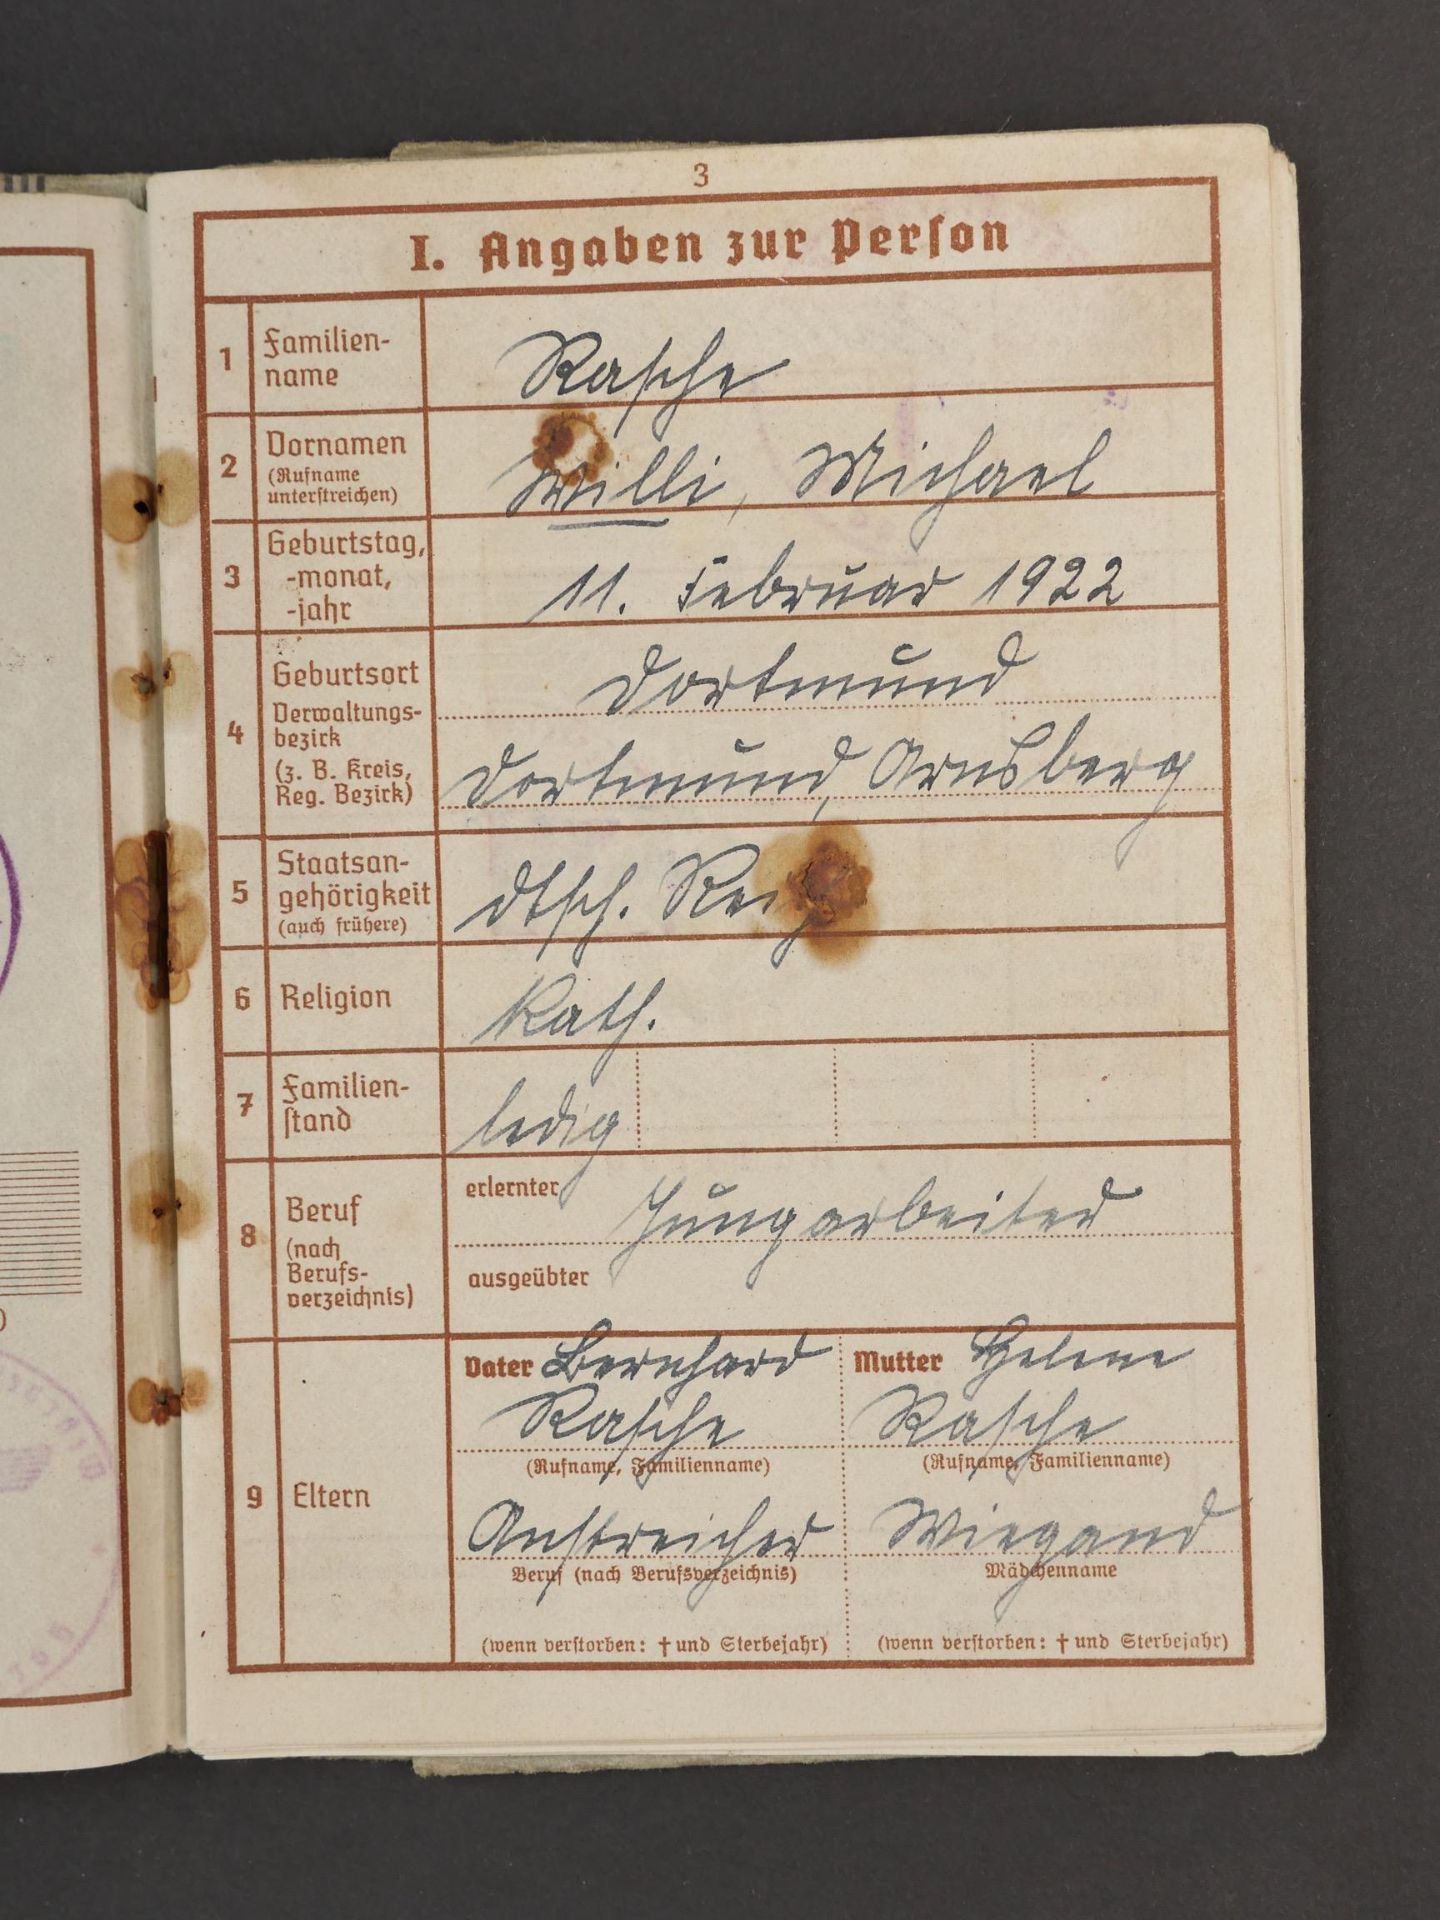 3
I. Angaben zur Person
1
Familien-
name
Rasche
2
Vornamen
(Rufname
unterstreichen)
Willi, Michael
3
Geburtstag,
-monat,
-jahr
11. Februar 1922
4
Geburtsort
Verwaltungs-
bezirk
(z. B. Kreis,
Reg. Bezirk)
Dortmund
Dortmund, Arnsberg
5
Staatsan-
gehörigkeit
(auch frühere)
dtsch.
6
Religion
Kath.
7
Familien-
stand
ledig
8
Beruf
(nach
Berufs-
verzeichnis)
erlernter
Jungarbeiter
ausgeübter
9
Eltern
Vater Bernhard
Rasche
(Rufname, Familienname)
Anstreicher
Beruf (nach Berufsverzeichnis)
(wenn verstorben: † und Sterbejahr)
Mutter Helene
Rasche
(Rufname, Familienname)
Wiegand
Mädchenname
(wenn verstorben: † und Sterbejahr)